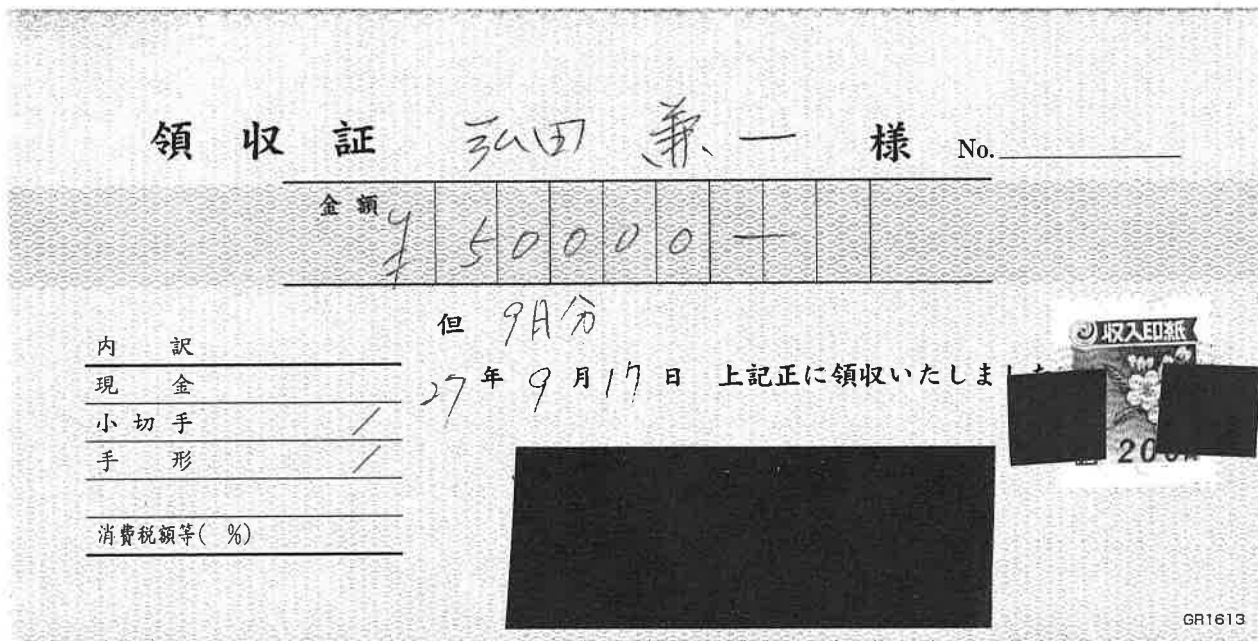 領収証 弘田 兼一 様 No.
金額 ¥50000―
但 9月分
27年9月17日 上記正に領収いたしました
内訳
現金
小切手 /
手形 /
消費税額等( %)
収入印紙
200円
GR1613